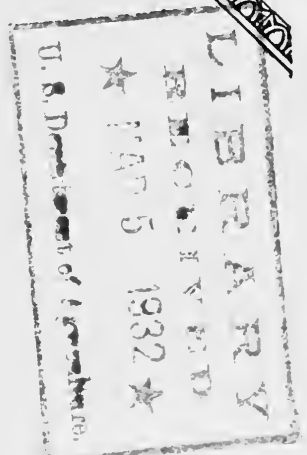 LIBRARY
RECEIVED
★ MAR 5 1932 ★
U. S. Department of Agriculture.